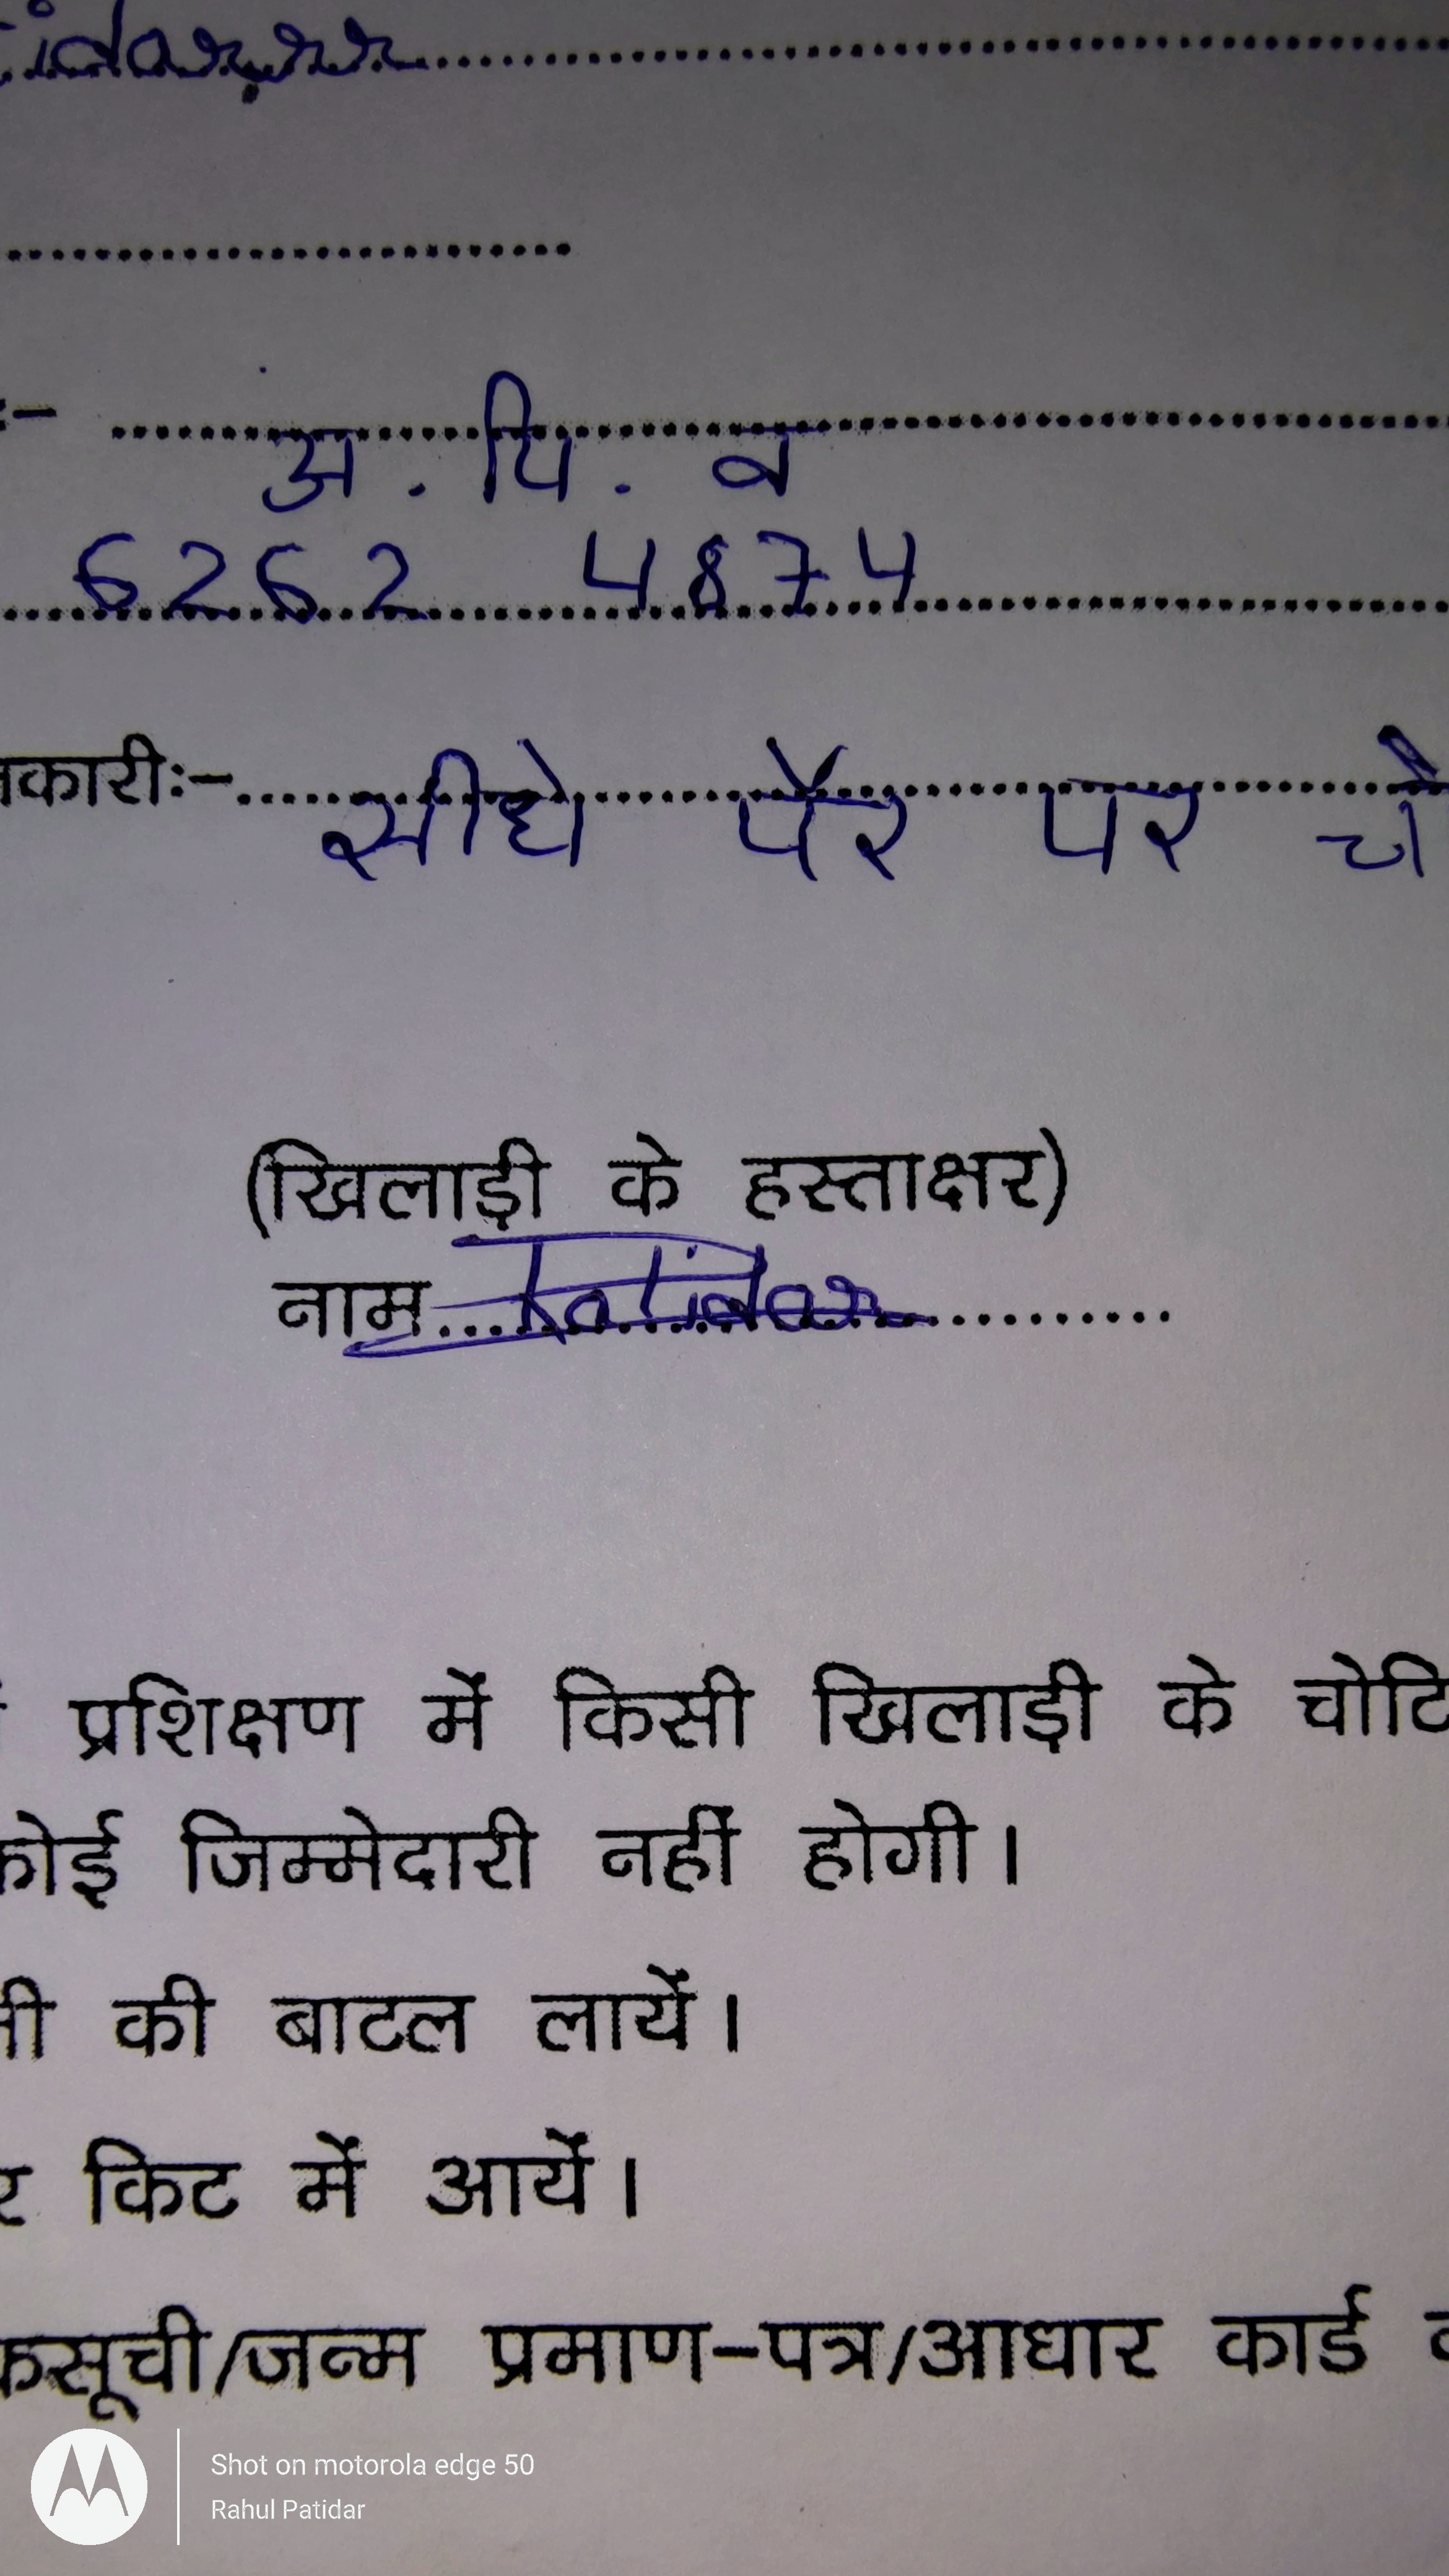 tidar
:-
अ. पि. व
6262 4874
नकारीः-
सीधे पैर पर चो
(खिलाड़ी के हस्ताक्षर)
नाम Patidar
प्रशिक्षण में किसी खिलाड़ी के चोटि
कोई जिम्मेदारी नहीं होगी।
नी की बाटल लायें।
र किट में आयें।
कसूची/जन्म प्रमाण-पत्र/आधार कार्ड
Shot on motorola edge 50
Rahul Patidar